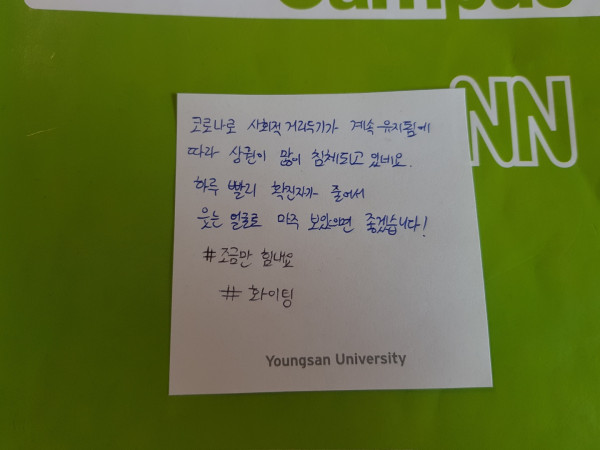 Campus
NN
코로나로 사회적 거리두기가 계속 유지됨에
따라 상권이 많이 침체되고 있네요.
하루 빨리 확진자가 줄어서
웃는 얼굴로 마주 보았으면 좋겠습니다!
#조금만 힘내요
# 화이팅
Youngsan University